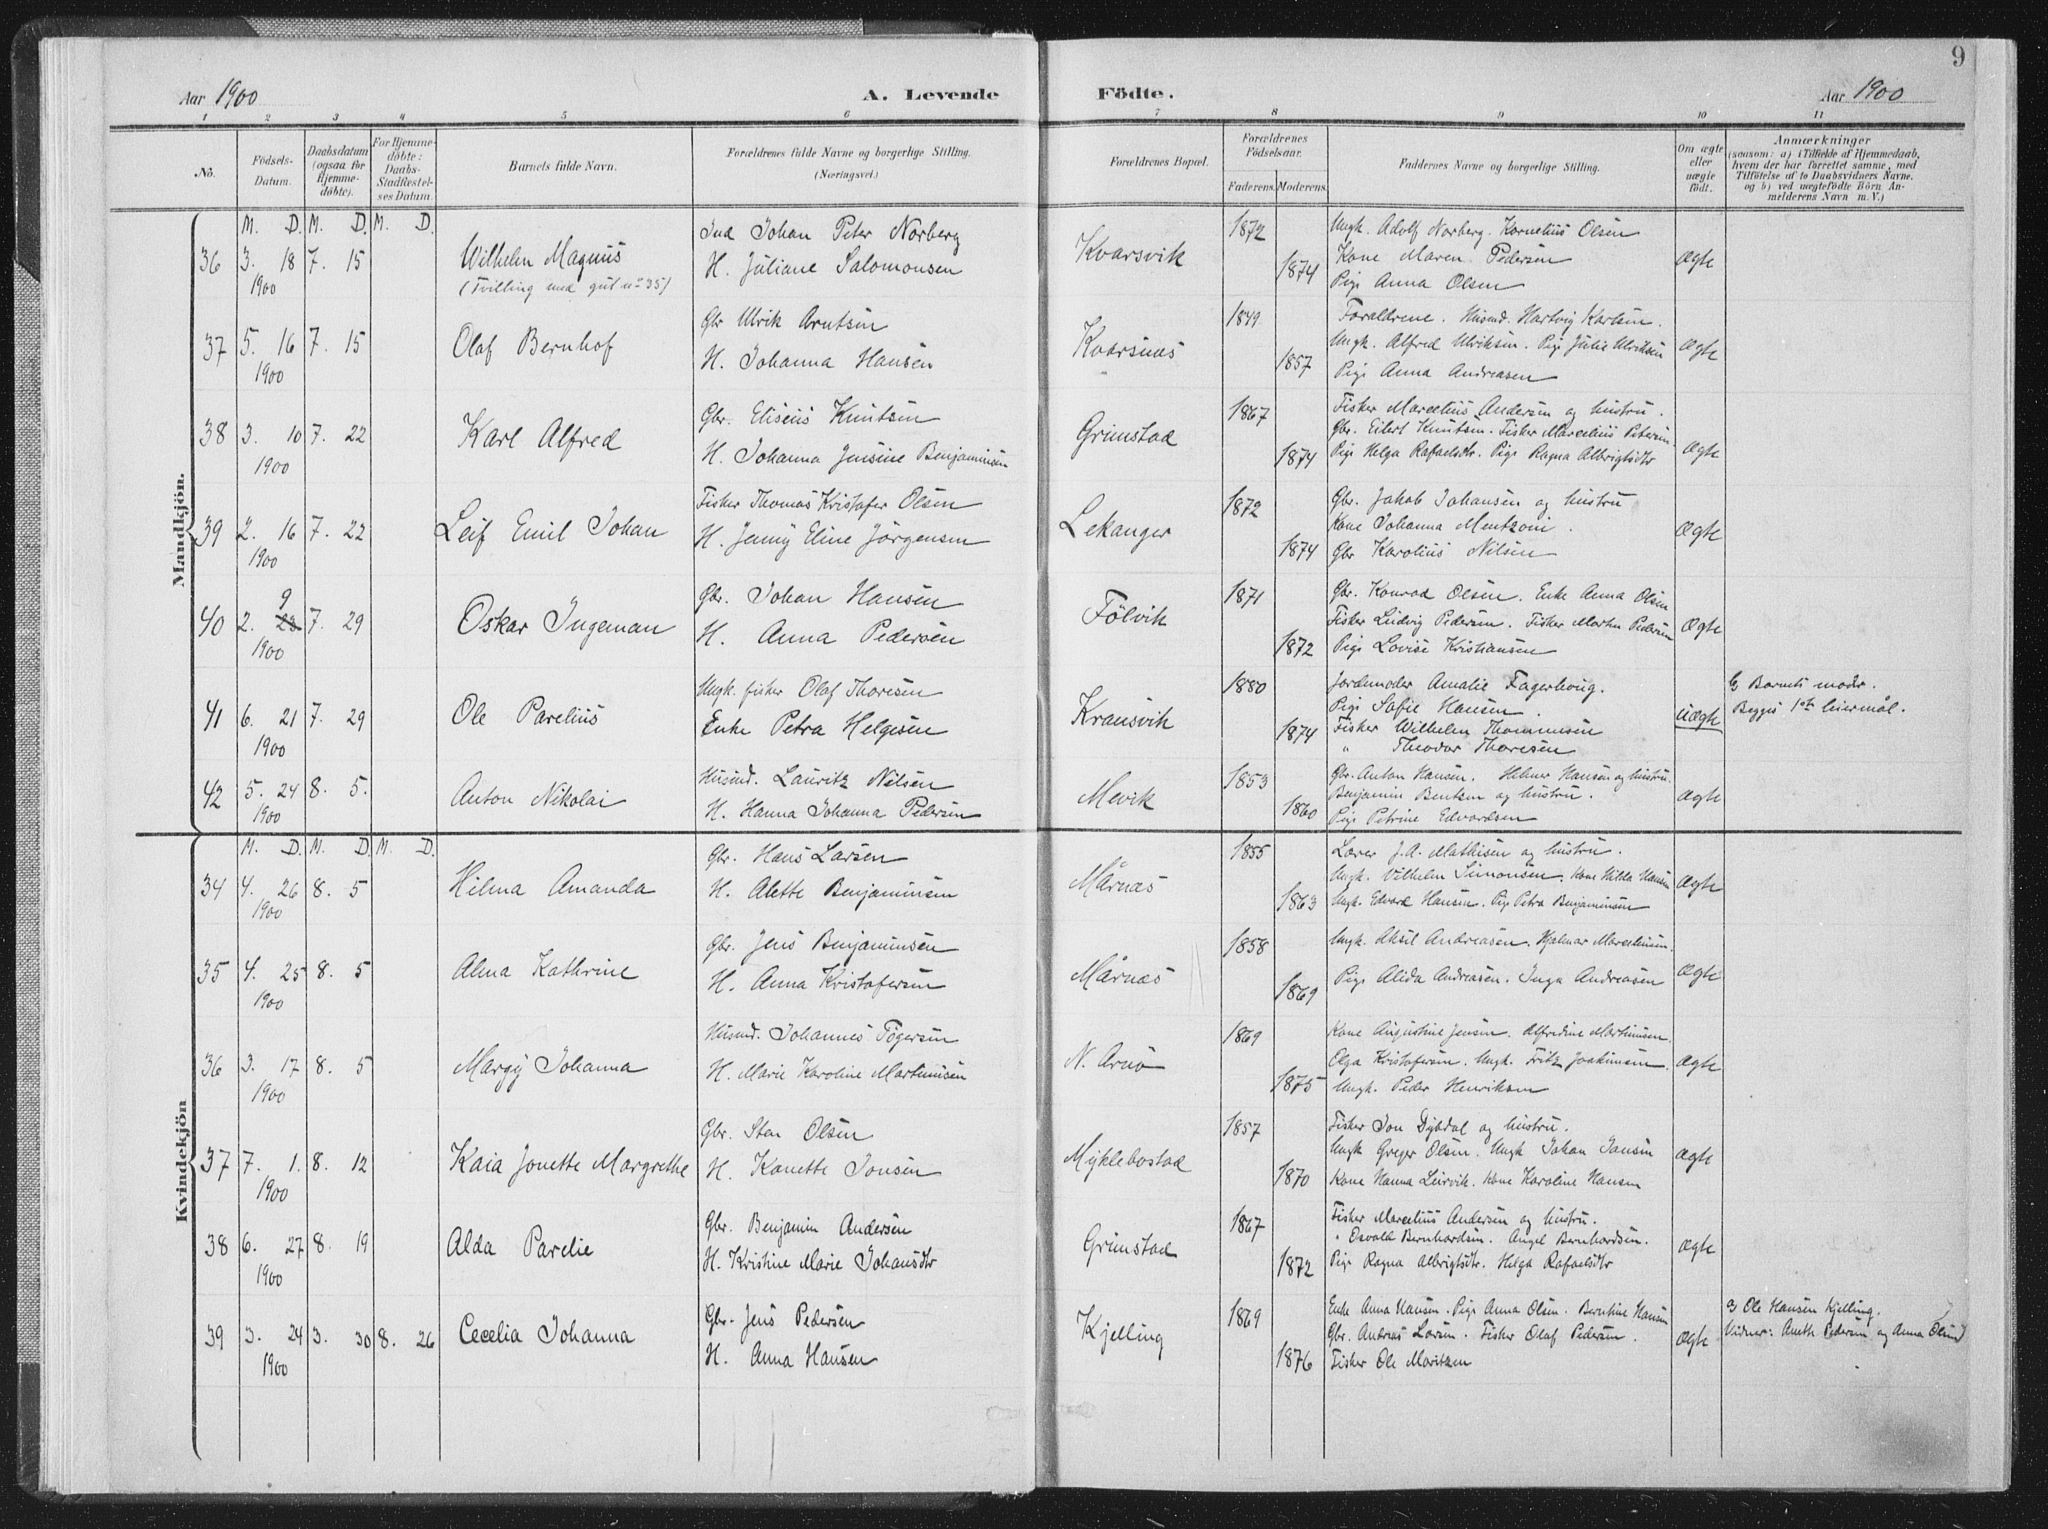 9
Aar 1900
A. Levende Födte.
Aar 1900
1 2 3 4 5 6 7 8 9 10 11
No.
Födsels-Datum.
Daabsdatum (ogsaa for Hjemme-döbte).
For Hjemme-döbte: Daabs-Stadfæstel-ses Datum.
Barnets fulde Navn.
Forældrenes fulde Navne og borgerlige Stilling. (Næringsvei.)
Forældrenes Bopæl.
Forældrenes Födselsaar.
Faderens. Moderens.
Faddernes Navne og borgerlige Stilling.
Om ægte eller uægte födt.
Anmærkninger
(saasom: a) i Tilfælde af Hjemmedaab, hvem der har forrettet samme, med Tilföielse af to Daabsvidners Navne, og b) ved uægtefödte Börn An-melderens Navn m. V.)
Mandkjön.
M. D. M. D. M. D.
36 3. 18 1900 7. 15
Wilhelm Magnus
(Tvilling med gut no 35)
Ind Johan Peter Norberg
H. Juliane Salomonsen
Kvarsvik
1872
1874
Ungk. Adolf Norberg. Kornelius Olsen
Kone Maren Pedersen
Pige Anna Olsen
Ægte
37 5. 16 1900 7. 15
Olaf Bernhof
Gbr Ulrik Arntsen
H. Johanna Hansen
Kvarsnæs
1849
1857
Forældrene. Husmd. Hartvig Karlsen.
Ungk. Alfred Ulriksen. Pige Julie Ulriksen
Pige Anna Andreasen
Ægte
38 3. 10 1900 7. 22
Karl Alfred
Gbr. Eliseus Knutsen
H. Johanna Jensine Benjaminsen
Grimstad
1867
1874
Fisker Marcelius Andersen og hustru.
Gbr. Eilert Knutsen. Fisker Marcelius Petersen.
Pige Helga Rafaelsdtr. Pige Ragna Albrigtsdtr
Ægte
39 2. 16 1900 7. 22
Leif Emil Johan
Fisker Thomas Kristofer Olsen
H. Jenny Eline Jörgensen
Lekanger
1872
1874
Gbr. Jakob Johansen og hustru
Kone Johanna Mentzoni.
Gbr Karolius Nilsen
Ægte
40 2. 23 9 1900 7. 29
Oskar Ingeman
Gbr. Johan Hansen
H. Anna Pedersen
Fölvik
1871
1872
Gbr. Konrad Olsen. Enke Anna Olsen
Fisker Ludvig Pedersen. Fisker Martin Pedersen
Pige Lovise Kristiansen
Ægte
41 6. 21 1900 7. 29
Ole Parelius
Ungk. fisker Olaf Thoresen
Enke Petra Helgesen
Kransvik
1880
1874
Jordemoder Amalie Fagerhoug.
Pige Safie Hansen.
Fisker Wilhelm Thommesen
" Theodor Thoresen
uægte
b) Barnets moder.
Begges 1ste leiermål.
42 5. 24 1900 8. 5.
Anton Nikolai
Husmd. Lauritz Nilsen
H. Hanna Johanna Pedersen
Mevik
1853
1860
Gbr. Anton Hansen. Hilmer Hansen og hustru.
Benjamin Bentsen og hustru.
Pige Petrine Edvardsen
Ægte
Kvindekjön
M. D. M. D. M. D.
34 4. 26 1900 8. 5
Hilma Amanda
Gbr. Hans Larsen
H. Alette Benjaminsen
Mårnæs
1855
1863
Lærer J. A. Mathisen og hustru.
Ungk. Vilhelm Simonsen. Kone Hilda Hansen
Ungk. Edvard Hansen. Pige Petra Benjaminsen
Ægte
35 4. 25 1900 8. 5
Alma Kathrine
Gbr. Jens Benjaminsen
H. Anna Kristofersen
Mårnæs
1858
1869
Ungk. Aksel Andreasen. Hjalmar Marcelinsen.
Pige Alida Andreasen. Inga Andreasen
Ægte
36 3. 17 1900 8. 5
Margy Johanna
Husmd. Johannes Togersen
H. Marie Karoline Martinusen
N. Arnö
1869
1875
Kone Augustine Jensen. Alfredine Martinusen.
Olga Kristofersen. Ungk. Fritz Joakimsen.
Ungk. Peder Henriksen
Ægte
37 7. 1. 1900 8. 12
Kaia Jonette Margrethe
Gbr. Sten Olsen
H. Kanette Jonsen
Myklebostad
1857
1870
Fisker Jon Dybdal og hustru.
Ungk Greger Olsen. Ungk Johan Jonsen
Kone Hanna Leirvik. Kone Karoline Hansen
Ægte
38 6. 27 1900 8. 19
Alda Parelie
Gbr. Benjamin Andersen
H. Kristine Marie Johansdtr
Grimstad
1867
1872
Fisker Marcelius Andersen og hustru.
" Osvald Bernhardsen. Angel Bernhardsen.
Pige Ragna Albrigtsdtr. Helga Rafaelsdtr
Ægte
39 3. 24 1900 3. 30 8. 26
Cecelia Johanna
Gbr. Jens Pedersen
H. Anna Hansen
Kjelling
1869
1876
Enke Anna Hansen. Pige Anna Olsen. Berntine Hansen
Gbr. Andreas Larsen. Fisker Olaf Pedersen.
Fisker Ole Moritzen
Ægte
a) Ole Hansen Kjelling.
Vidner: Anth. Pedersen og Anna Olsen